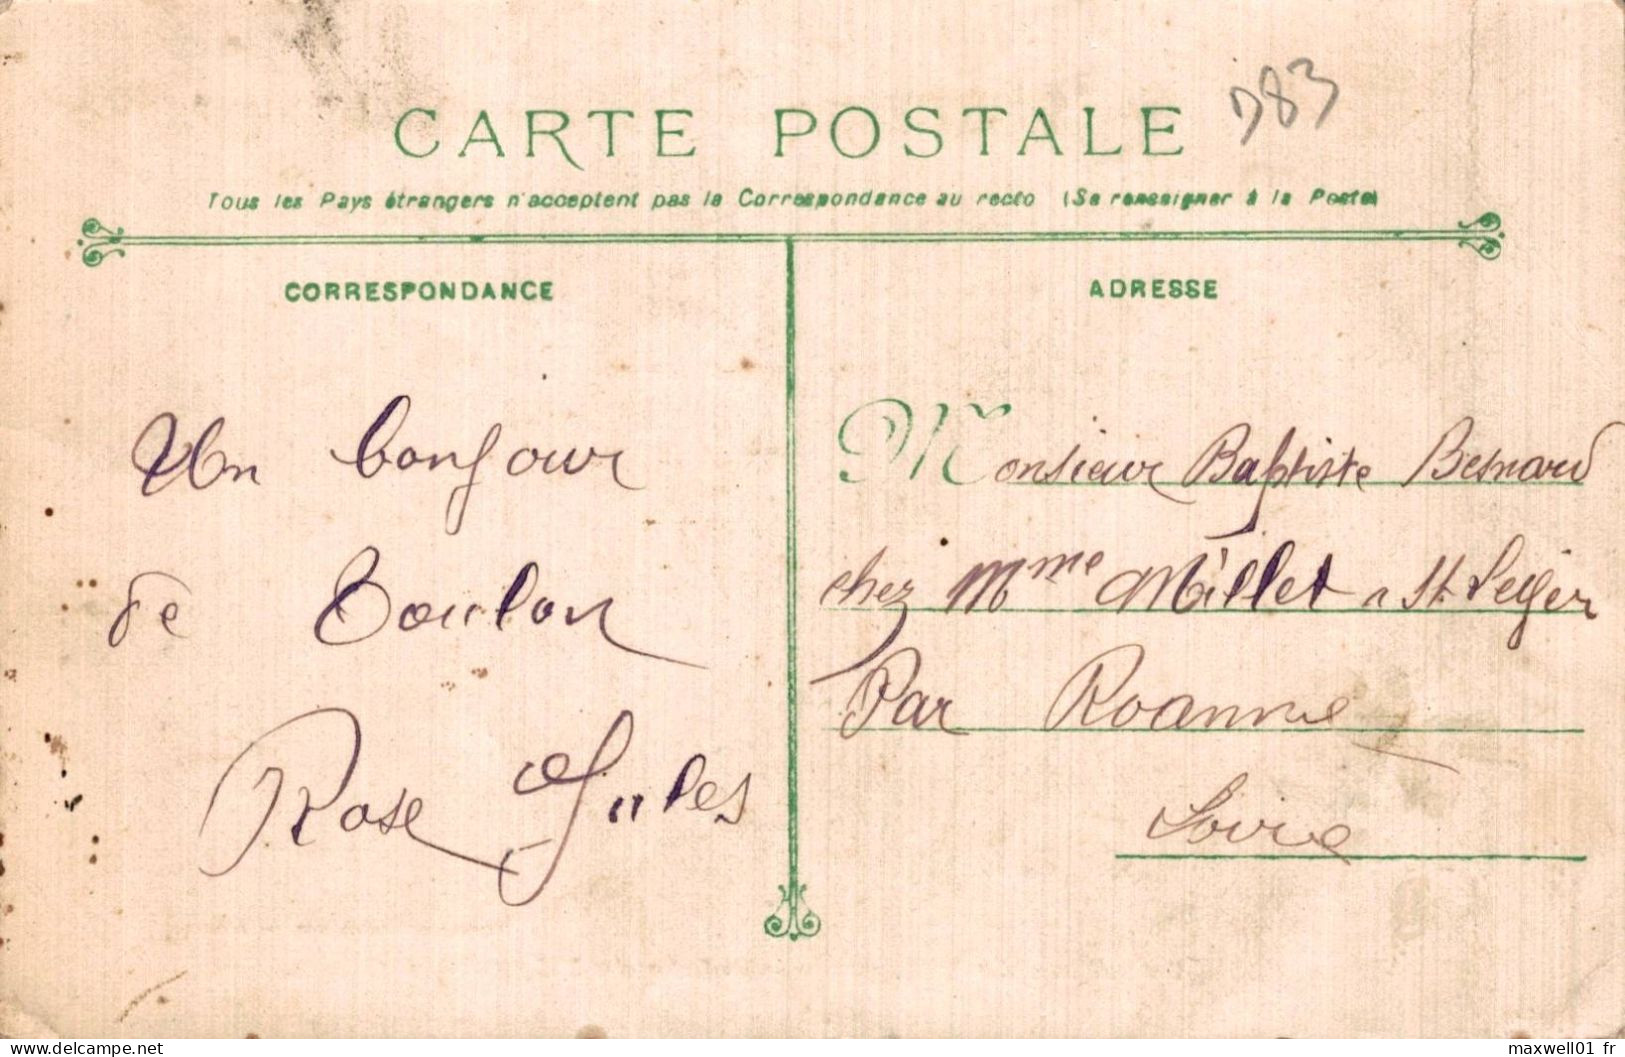 D83
CARTE POSTALE
Tous les Pays étrangers n'acceptent pas la Correspondance au recto (Se renseigner à la Poste)
CORRESPONDANCE
Un bonjour
de Toulon
Rose Jules
ADRESSE
Monsieur Baptiste Besnard
chez Mme Millet a St. Leger
Par Roanne
Loire
maxwell01 fr